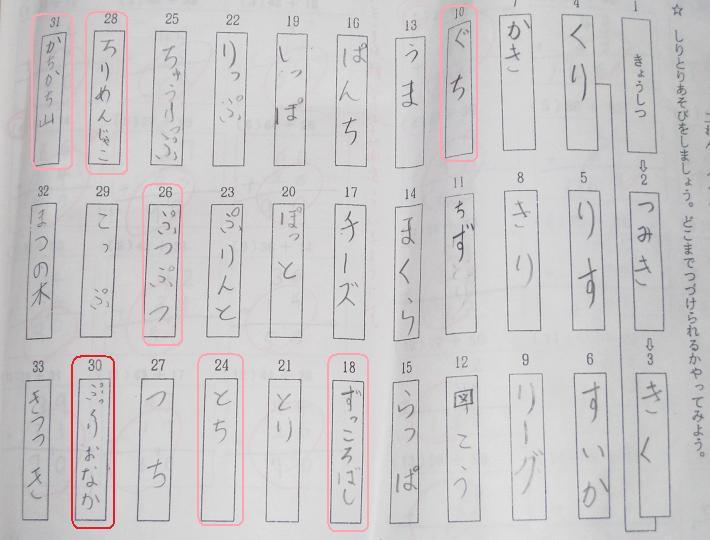 ☆ しりとりあそびをしましょう。どこまでつづけられるかやってみよう。
1
きょうしつ
⇩2
つみき
⇩3
きく
4
くり
5
りす
6
すいか
7
かき
8
きり
9
リーグ
10
ぐち
11
ちず
12
図こう
13
うま
14
まくら
15
らっぱ
16
ぱんち
17
チーズ
18
ずっころばし
19
しっぽ
20
ぽっと
21
とり
22
りっぷ
23
ぷりんと
24
とち
25
ちゅうりっぷ
26
ぷつぷつ
27
つち
28
ちりめんじゃこ
29
こっぷ
30
ぷっくりおなか
31
かちかち山
32
まつの木
33
きつつき